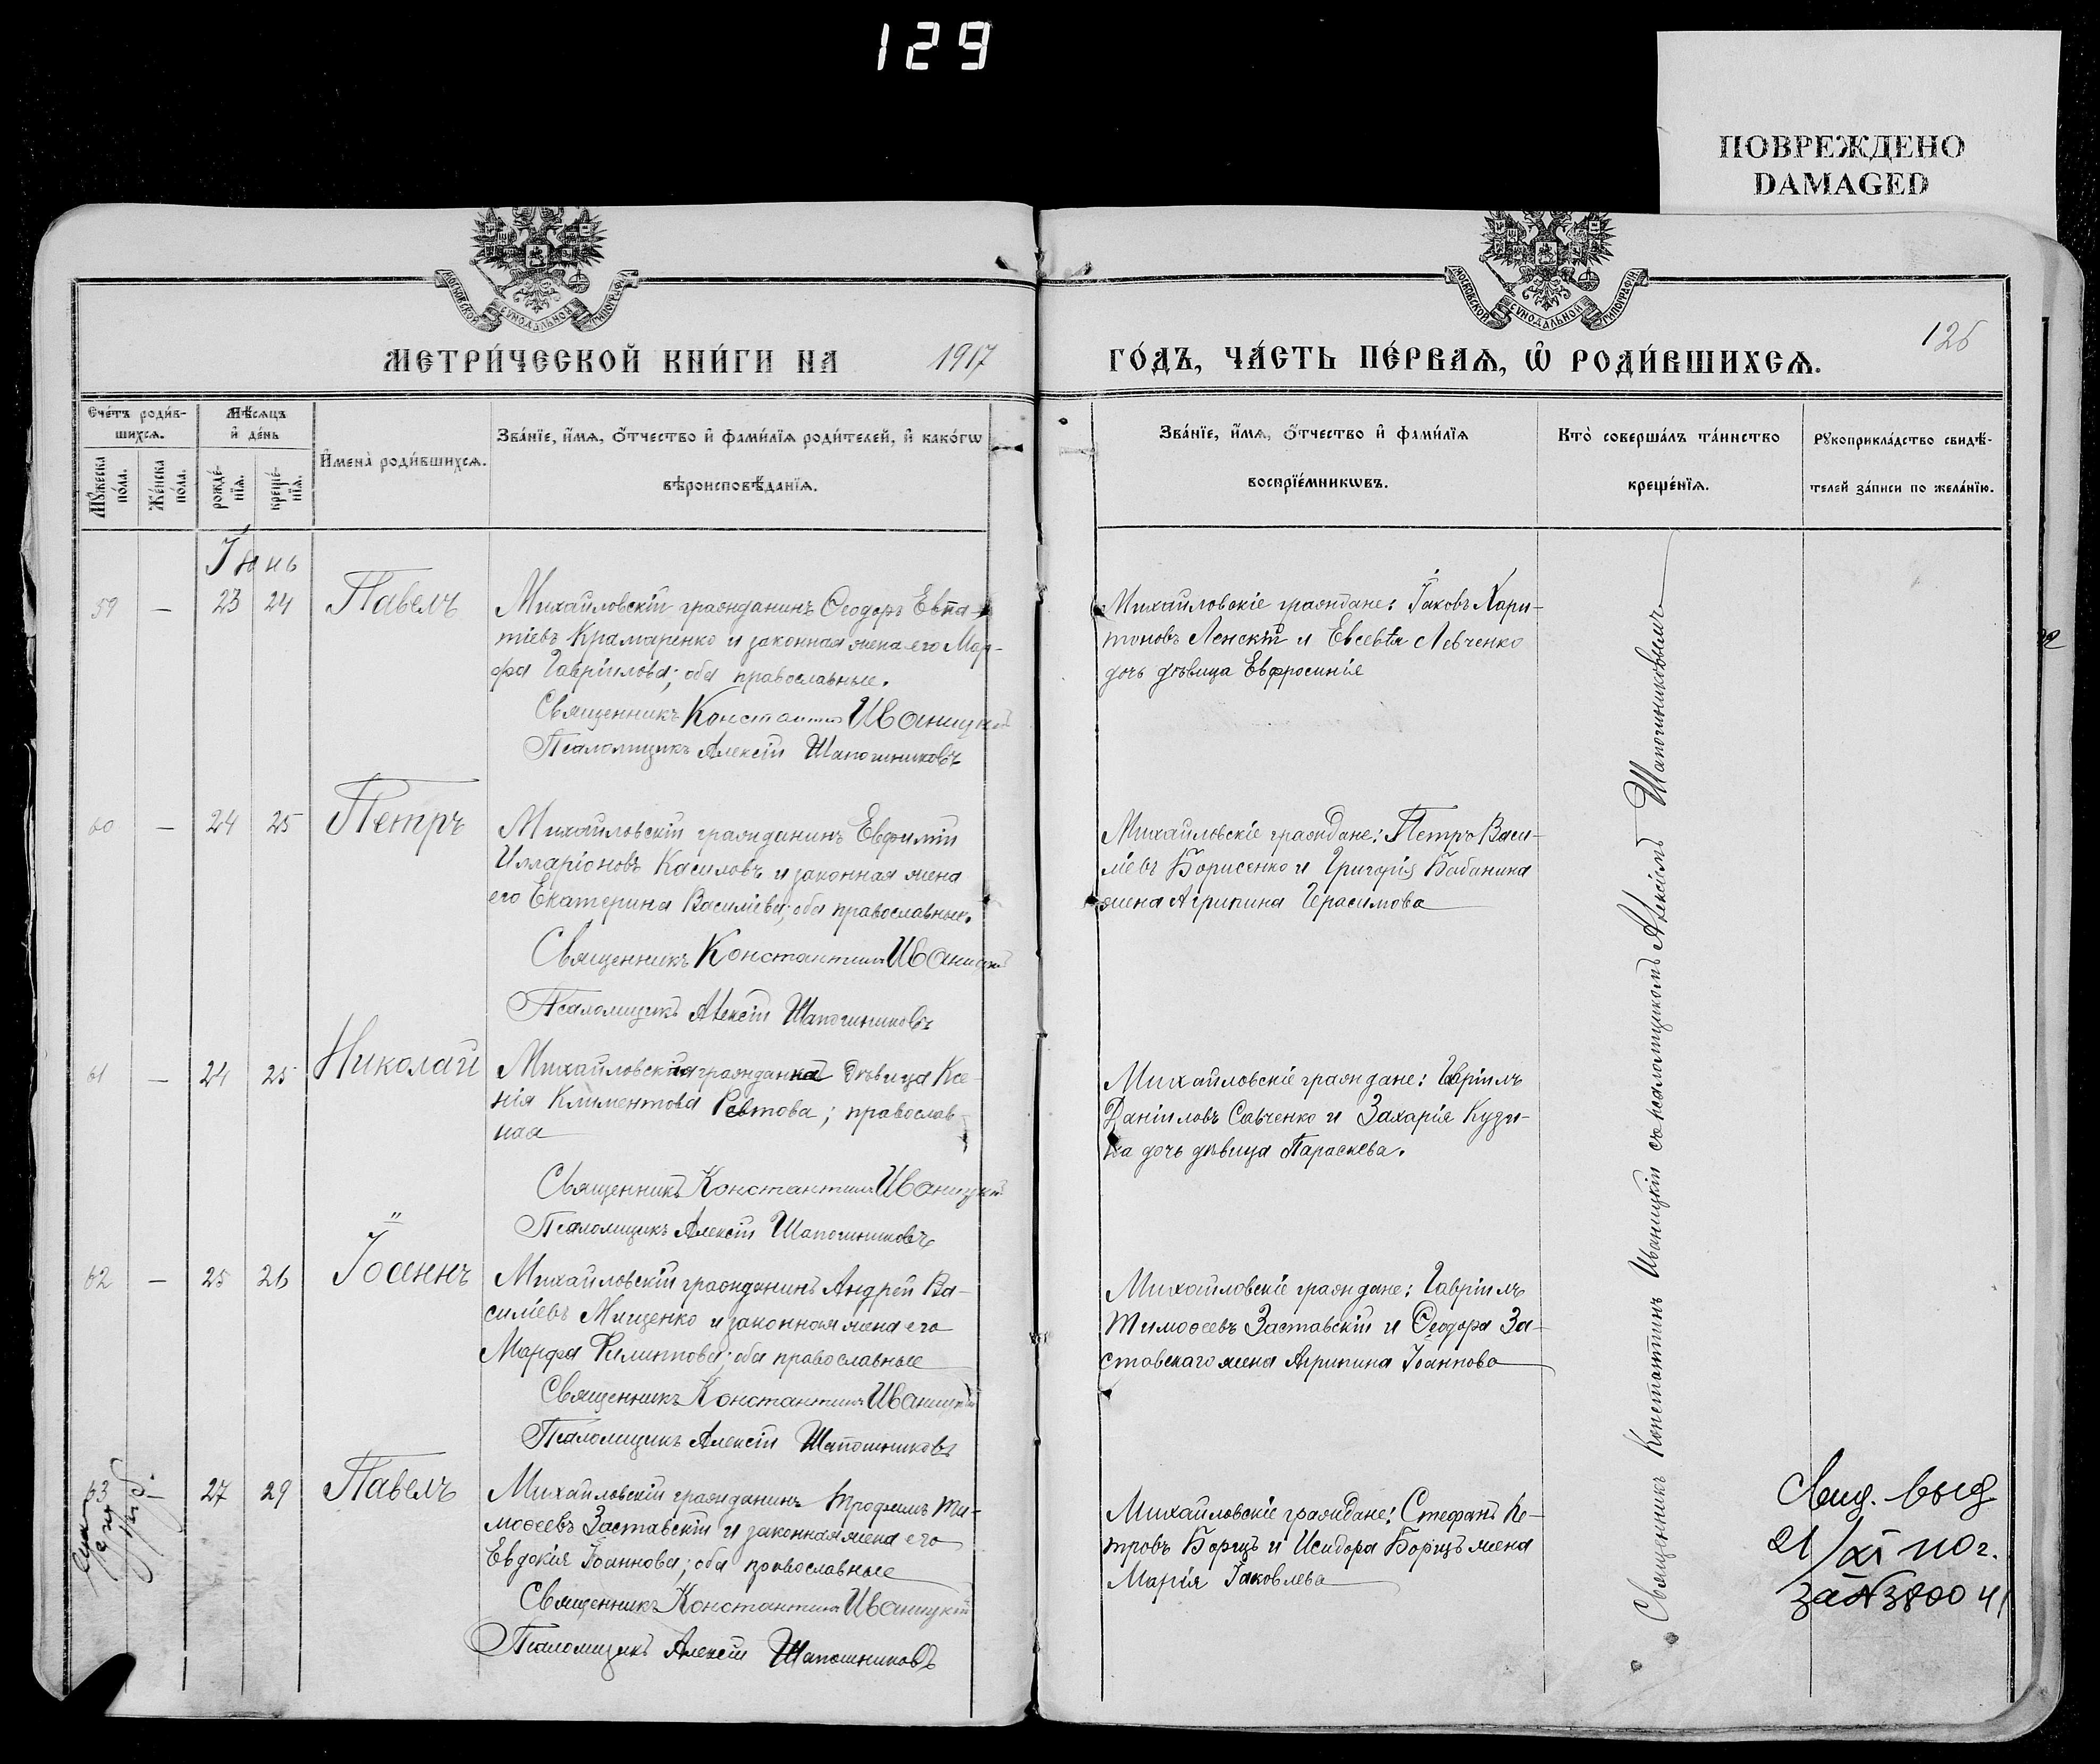 129
ПОВРЕЖДЕНО
DAMAGED
МОСКОВСКОЙ СѴНОДАЛЬНОЙ ТИПОГРАФІИ
МОСКОВСКОЙ СѴНОДАЛЬНОЙ ТИПОГРАФІИ
126
МЕТРИ́ЧЕСКОЙ КНИ́ГИ НА 1917 ГО́ДЪ, ЧА́СТЬ ПЕ́РВАѦ, Ѡ РОДИ́ВШИХСѦ.
Сче́тъ роди́в-
шихсѧ.
Мѣ́сѧцъ
и҆ де́нь
Мꙋ́жеска
по́ла.
Же́нска
по́ла.
рожде́-
нїѧ.
креще́-
нїѧ.
И҆мена̀ роди́вшихсѧ.
Зва́нїе, и҆́мѧ, ѻ҆́тчество и҆ фами́лїѧ роди́телей, и҆ како́гѡ
вѣроисповѣ́данїѧ.
Зва́нїе, и҆́мѧ, ѻ҆́тчество и҆ фами́лїѧ
воспрїе́мникѡвъ.
Кто̀ соверша́лъ та́инство
креще́нїѧ.
Рꙋкоприкла́дство свидѣ́-
телей за́писи по жела́нїю.
Іюнь
59 — 23 24 Павелъ
Михайловскій гражданинъ Ѳеодоръ Евпа-
тіевъ Крамаренко и законная жена его Мар-
фа Гавріилова; оба православные.
Священникъ Константинъ Иваницкій
Псаломщикъ Алексій Шапошниковъ
Михайловскіе граждане: Іаковъ Хари-
тоновъ Ленскій и Евсевія Левченко
дочь дѣвица Евфросинія
60 — 24 25 Петръ
Михайловскій гражданинъ Евфимій
Илларіоновъ Касиловъ и законная жена
его Екатерина Василіева; оба православные.
Священникъ Константинъ Иваницкій
Псаломщикъ Алексій Шапошниковъ
Михайловскіе граждане: Петръ Васи-
ліевъ Борисенко и Григорія Бабанина
жена Агрипина Герасимова
61 — 24 25 Николай
Михайловская гражданка дѣвица Ксе-
нія Климентова Ревтова; православ
ная
Священникъ Константинъ Иваницкій
Псаломщикъ Алексій Шапошниковъ
Михайловскіе граждане: Гавріилъ
Даніиловъ Савченко и Захарія Кузи-
на дочь дѣвица Параскева.
62 — 25 26 Іоаннъ
Михайловскій гражданинъ Андрей Ва-
силіевъ Мищенко и законная жена его
Марфа Филиппова; оба православные
Священникъ Константинъ Иваницкій
Псаломщикъ Алексій Шапошниковъ
Михайловскіе граждане: Гавріилъ
Тимоѳеевъ Заставскій и Ѳеодора За-
ставскаго жена Агрипина Іоаннова
63 27 29 Павелъ
Михайловскій гражданинъ Трофимъ Ти-
моѳеевъ Заставскій и законная жена его
Евдокія Іоаннова; оба православные
Священникъ Константинъ Иваницкій
Псаломщикъ Алексій Шапошниковъ
Михайловскіе граждане: Стефанъ Пе-
тровъ Борщъ и Исидора Борщъ жена
Марія Іаковлева
Священникъ Константинъ Иваницкій съ псаломщикомъ Алексіемъ Шапошниковымъ
Свид. выд
21/XI
за №